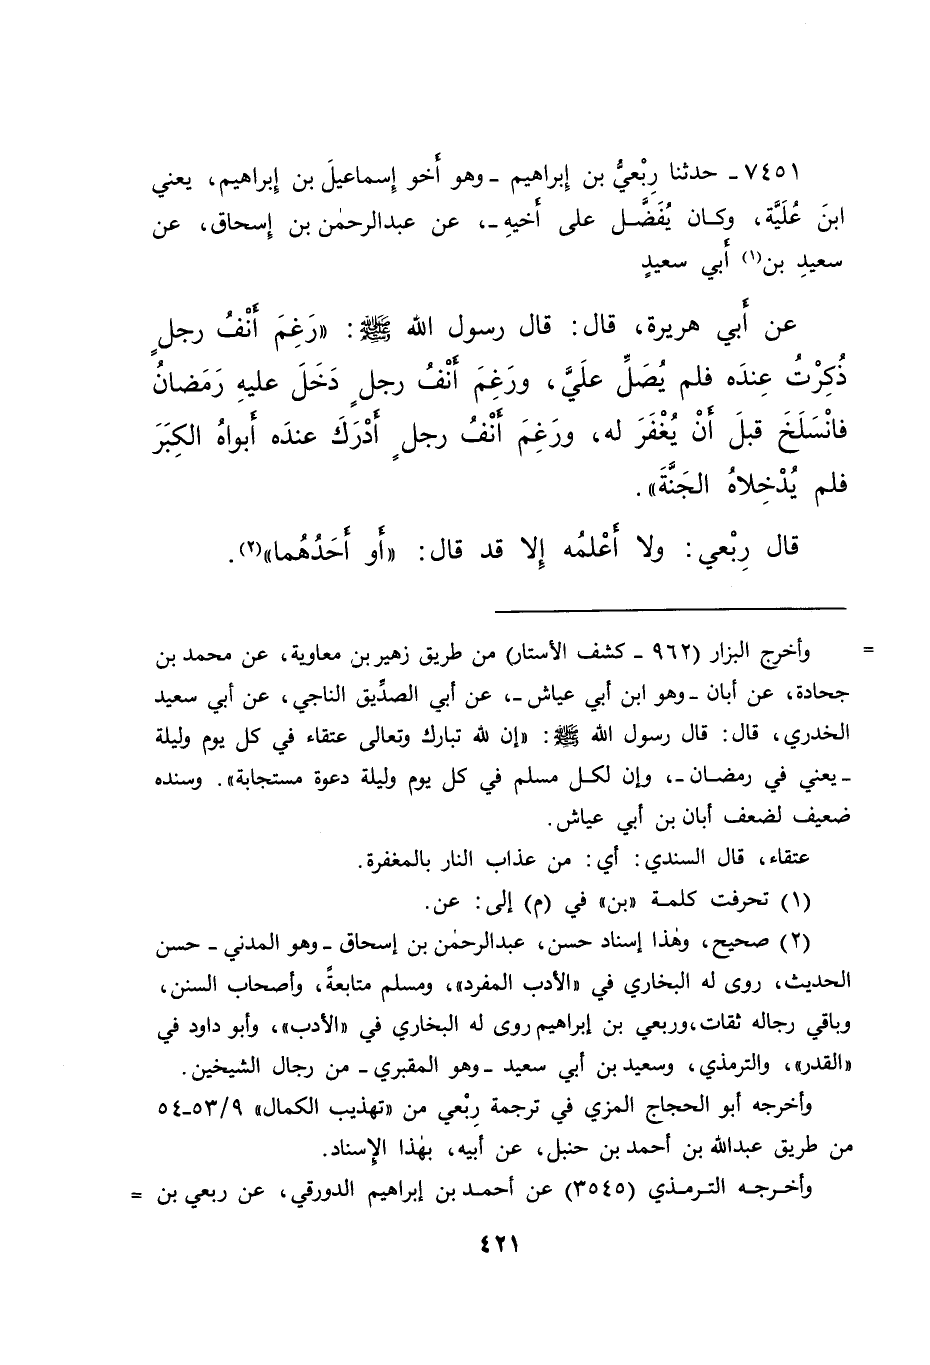 ٧٤٥١ ـ حدثنا رِبْعيُّ بن إبراهيم ـ وهو أَخو إسماعيلَ بن إبراهيم، يعني
ابنَ عُلَيَّة، وكان يُفَضَّل على أَخيهِ ـ، عن عبدالرحمٰن بن إسحاق، عن
سعيدِ بن(١) أَبي سعيدٍ
عن أَبي هريرة، قال: قال رسول الله ﷺ: «رَغِمَ أَنْفُ رجلٍ
ذُكِرْتُ عِندَه فلم يُصَلِّ عليَّ، ورَغِمَ أَنْفُ رجلٍ دَخَلَ عليهِ رَمَضانُ
فانْسَلَخَ قبلَ أَنْ يُغْفَرَ له، ورَغِمَ أَنْفُ رجلٍ أَدْرَكَ عندَه أَبواهُ الكِبَرَ
فلم يُدْخِلاهُ الجَنَّةَ».
قال رِبْعي: ولا أَعْلمُه إلا قد قال: «أَو أَحَدُهُما»(٢).
= وأخرج البزار (٩٦٢ ـ كشف الأستار) من طريق زهير بن معاوية، عن محمد بن
جحادة، عن أبان ـ وهو ابن أبي عياش ـ، عن أبي الصدِّيق الناجي، عن أبي سعيد
الخدري، قال: قال رسول الله ﷺ: «إن لله تبارك وتعالى عتقاء في كل يوم وليلة
ـ يعني في رمضان ـ، وإن لكل مسلم في كل يوم وليلة دعوة مستجابة». وسنده
ضعيف لضعف أبان بن أبي عياش.
عتقاء، قال السندي: أي: من عذاب النار بالمغفرة.
(١) تحرفت كلمة «بن» في (م) إلى: عن.
(٢) صحيح، وهٰذا إسناد حسن، عبدالرحمٰن بن إسحاق ـ وهو المدني ـ حسن
الحديث، روى له البخاري في «الأدب المفرد»، ومسلم متابعةً، وأصحاب السنن،
وباقي رجاله ثقات، وربعي بن إبراهيم روى له البخاري في «الأدب»، وأبو داود في
«القدر»، والترمذي، وسعيد بن أبي سعيد ـ وهو المقبري ـ من رجال الشيخين.
وأخرجه أبو الحجاج المزي في ترجمة رِبْعي من «تهذيب الكمال» ٩/٥٣ـ٥٤
من طريق عبدالله بن أحمد بن حنبل، عن أبيه، بهٰذا الإسناد.
وأخرجه الترمذي (٣٥٤٥) عن أحمد بن إبراهيم الدورقي، عن ربعي بن =
٤٢١